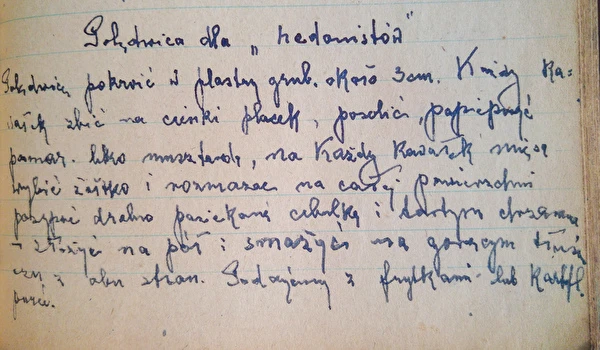 Polędwica dla „hedonistów"
Polędwicę pokroić w plastry grub. około 3cm. Każdy ka-
wałek zbić na cienki placek, posolić, popieprzyć
posmar. lekko musztardą, na każdy kawałek mięsa
wybić żółtko i rozmazać na całej powierzchni
posypać drobno posiekaną cebulką i tartym chrzanem
- złożyć na pół i smażyć na gorącym tłusz
czu z obu stron. Podajemy z frytkami lub kartofl.